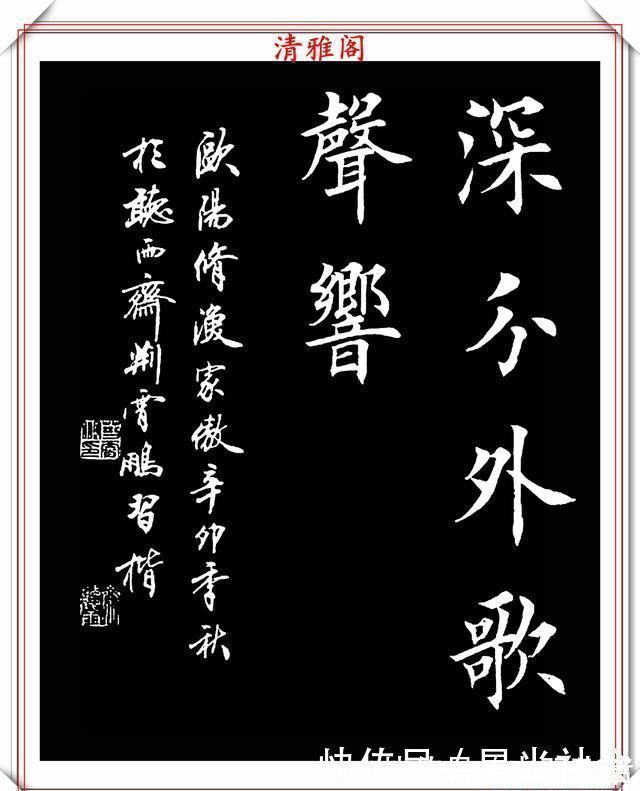 清雅阁
深分外歌
聲響
歐陽脩漁家傲辛卯季秋
於聽雨齋荊霄鵬習楷